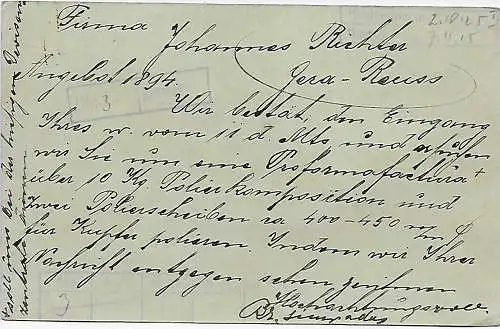 Firma
Johannes Richter
Gera-Reuss
Angebot 1894.
3
Wir bestät. den Eingang
Ihres w. vom 11 d. Mts. und
wir Sie um eine Proformafactura +
über 10 Kg. Polierkomposition und
Zwei Polierscheiben ca 400-450 m/m
für Kupfer polieren. Indem wir Ihrer
Nachricht entgegen sehen zeichnen
Hochachtungsvoll
3
+ soll uns bei der hiesigen Devisen
zentrale